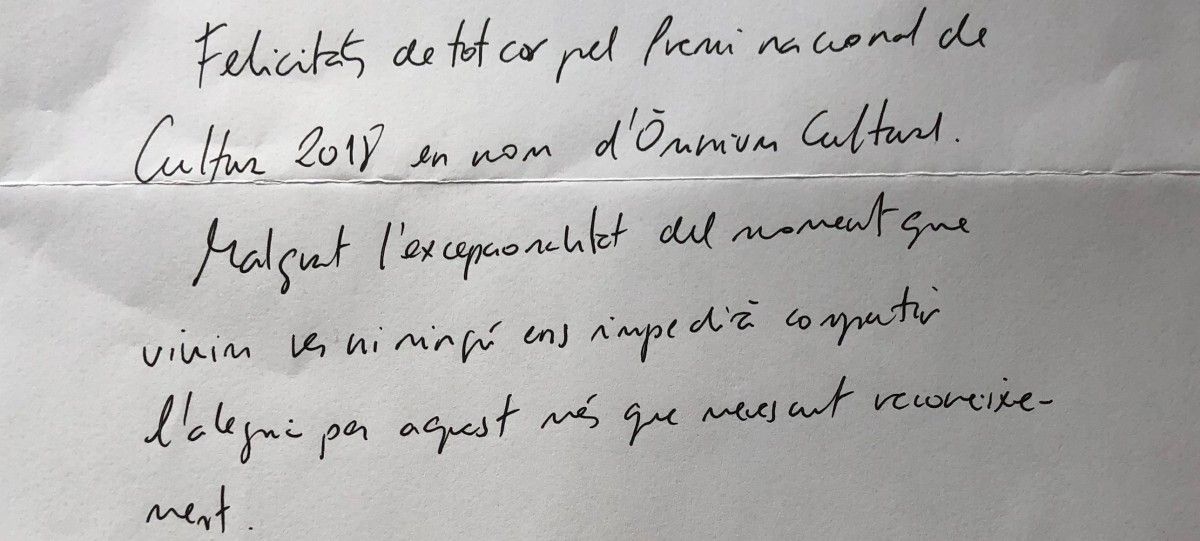 Felicitats de tot cor pel Premi nacional de
Cultura 2018 en nom d'Òmnium Cultural.
Malgrat l'excepcionalitat del moment que
vivim res ni ningú ens impedirà compartir
l'alegria per aquest més que merescut reconeixe-
ment.